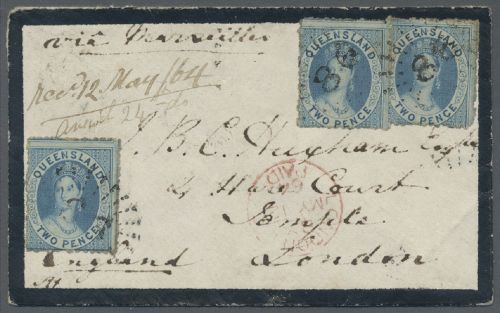 via Marseilles
QUEENSLAND QUEENSLAND
TWO PENCE TWO PENCE
Recd 12 May/64
24
J. B. C. Esqre
4 Harcourt Court
Temple
London
England
QUEENSLAND
TWO PENCE
PAID